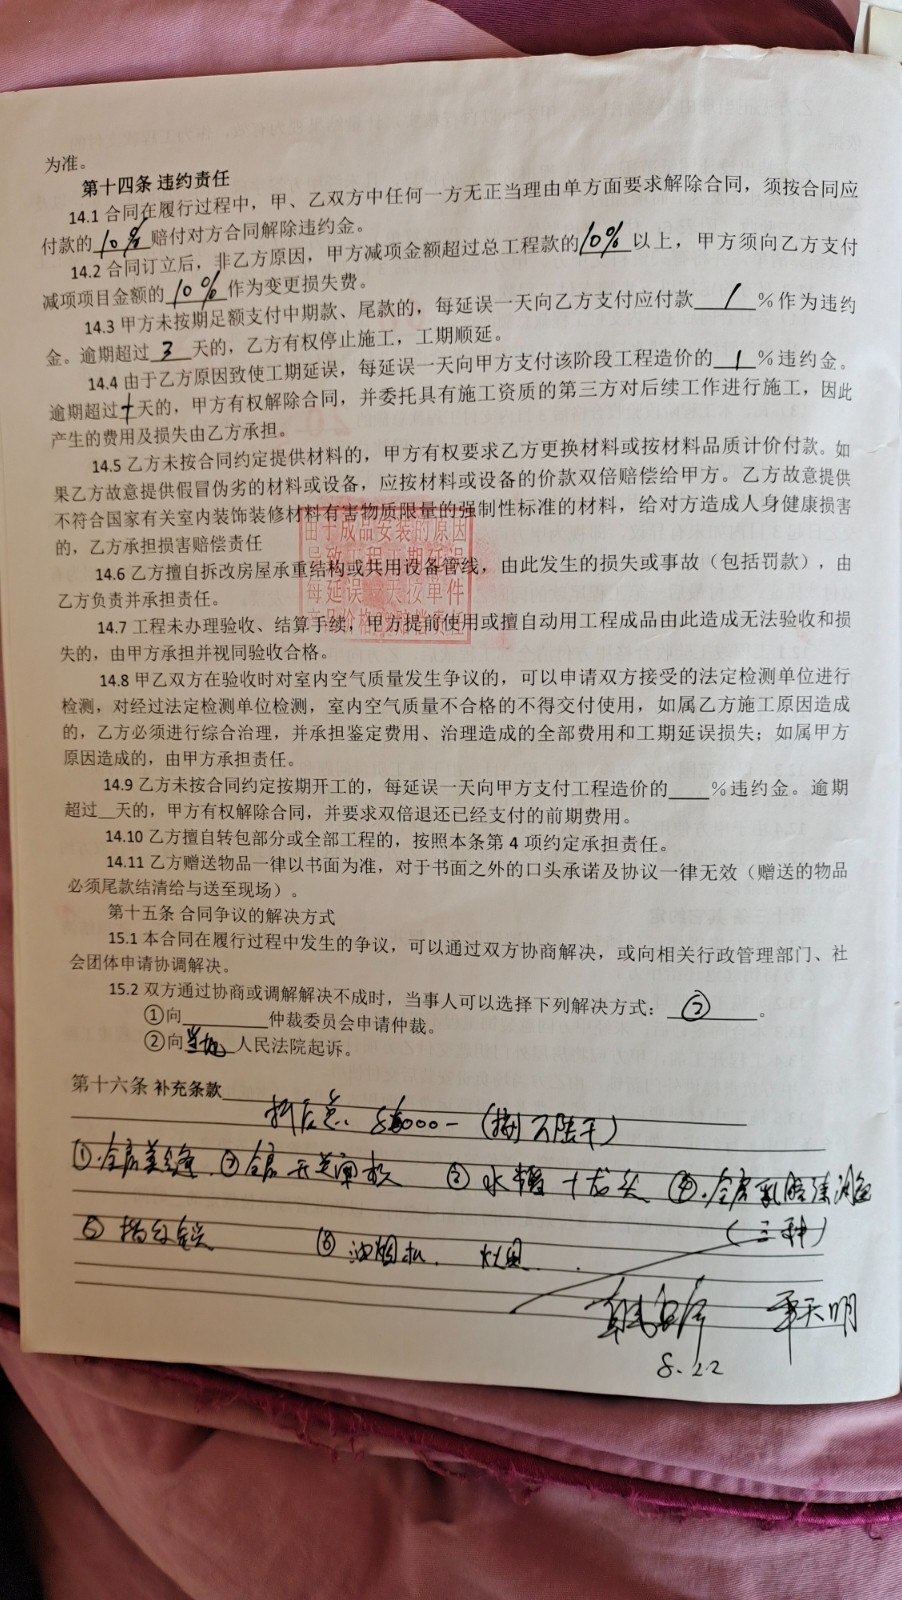 为准。
第十四条 违约责任
14.1 合同在履行过程中，甲、乙双方中任何一方无正当理由单方面要求解除合同，须按合同应
付款的 10% 赔付对方合同解除违约金。
14.2 合同订立后，非乙方原因，甲方减项金额超过总工程款的10% 以上，甲方须向乙方支付
减项项目金额的 10% 作为变更损失费。
14.3 甲方未按期足额支付中期款、尾款的，每延误一天向乙方支付应付款 1 %作为违约
金。逾期超过 3 天的，乙方有权停止施工，工期顺延。
14.4 由于乙方原因致使工期延误，每延误一天向甲方支付该阶段工程造价的 1 %违约金。
逾期超过十天的，甲方有权解除合同，并委托具有施工资质的第三方对后续工作进行施工，因此
产生的费用及损失由乙方承担。
14.5 乙方未按合同约定提供材料的，甲方有权要求乙方更换材料或按材料品质计价付款。如
果乙方故意提供假冒伪劣的材料或设备，应按材料或设备的价款双倍赔偿给甲方。乙方故意提供
不符合国家有关室内装饰装修材料有害物质限量的强制性标准的材料，给对方造成人身健康损害
的，乙方承担损害赔偿责任
由于成品安装的原因
导致工程工期延误
每延误一天按单件
产品价格的 赔偿责任
14.6 乙方擅自拆改房屋承重结构或共用设备管线，由此发生的损失或事故（包括罚款），由
乙方负责并承担责任。
14.7 工程未办理验收、结算手续，甲方提前使用或擅自动用工程成品由此造成无法验收和损
失的，由甲方承担并视同验收合格。
14.8 甲乙双方在验收时对室内空气质量发生争议的，可以申请双方接受的法定检测单位进行
检测，对经过法定检测单位检测，室内空气质量不合格的不得交付使用，如属乙方施工原因造成
的，乙方必须进行综合治理，并承担鉴定费用、治理造成的全部费用和工期延误损失；如属甲方
原因造成的，由甲方承担责任。
14.9 乙方未按合同约定按期开工的，每延误一天向甲方支付工程造价的____%违约金。逾期
超过__天的，甲方有权解除合同，并要求双倍退还已经支付的前期费用。
14.10 乙方擅自转包部分或全部工程的，按照本条第 4 项约定承担责任。
14.11 乙方赠送物品一律以书面为准，对于书面之外的口头承诺及协议一律无效（赠送的物品
必须尾款结清给与送至现场）。
第十五条 合同争议的解决方式
15.1 本合同在履行过程中发生的争议，可以通过双方协商解决，或向相关行政管理部门、社
会团体申请协调解决。
15.2 双方通过协商或调解解决不成时，当事人可以选择下列解决方式： ② 。
①向________仲裁委员会申请仲裁。
②向当地人民法院起诉。
第十六条 补充条款
折后总：
①.全房美缝 ③全房开关面板 ② 水槽+龙头 ④.全房乳胶漆调色
（三种）
⑤ 指纹锁 ⑥ 油烟机. 灶具.
8.22